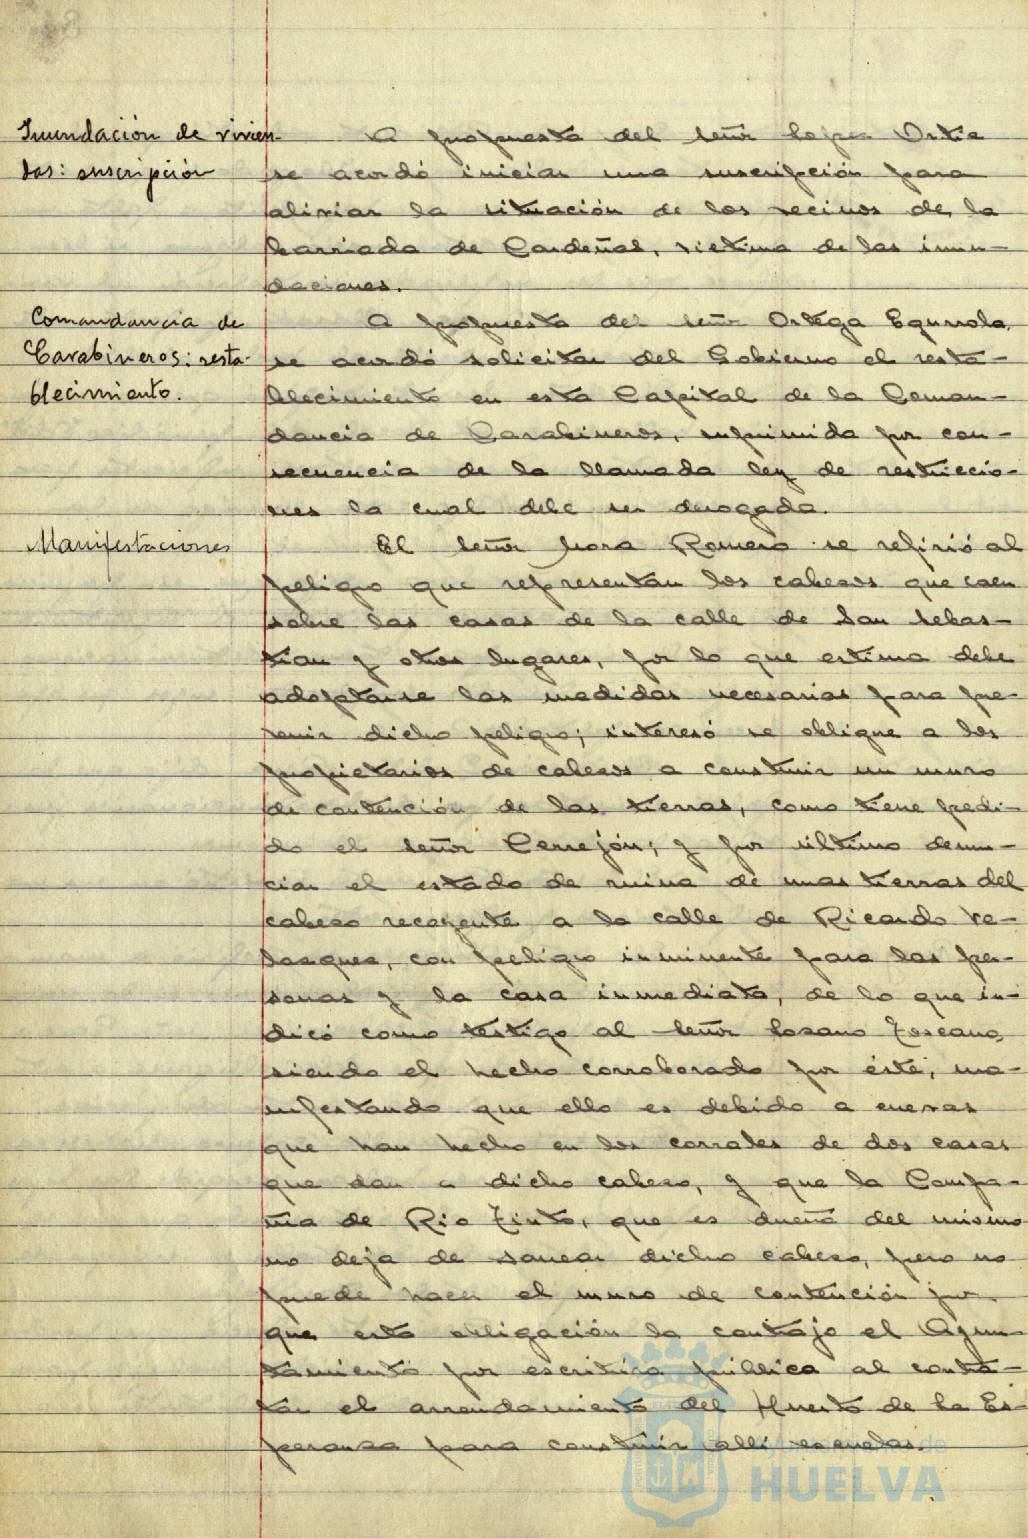 Inundación de vivien-
das: suscripción
A propuesta del señor Lopez Ortiz
se acordó iniciar una suscripción para
aliviar la situación de los vecinos de la
barriada de Cardeñas, victima de las inun-
daciones.
Comandancia de
Carabineros: resta-
blecimiento.
A propuesta del señor Ortega Egurrola,
se acordó solicitar del Gobierno el resta-
blecimiento en esta Capital de la Coman-
dancia de Carabineros, suprimida por con-
secuencia de la llamada ley de restriccio-
nes la cual debe ser derogada.
Manifestaciones
El señor Mora Romero se refirió al
peligro que representan los cabezos que caen
sobre las casas de la calle de San Sebas-
tian y otros lugares, por lo que estima debe
adoptarse las medidas necesarias para pre-
venir dicho peligro; interesó se obligue a los
propietarios de cabezos a construir un muro
de contención de las tierras, como tiene pedi-
do el señor Cerrejón; y por último denun-
ciar el estado de ruina de unas tierras del
cabezo recayente a la calle de Ricardo Ve-
lasquez, con peligro inminente para las per-
sonas y la casa inmediata, de lo que in-
dicó como testigo al señor Lozano Toscano,
siendo el hecho corroborado por éste, ma-
nifestando que ello es debido a cuevas
que han hecho en los corrales de dos casas
que dan a dicho cabezo, y que la Compa-
ñia de Rio Tinto, que es dueña del mismo
no deja de sanear dicho cabezo, pero no
puede hacer el muro de contención por
que esta obligación la contrajo el Ayun-
tamiento por escritura pública al contra-
tar el arrendamiento del Huerto de la Es-
peranza para construir alli escuelas.
Ayuntamiento de
HUELVA